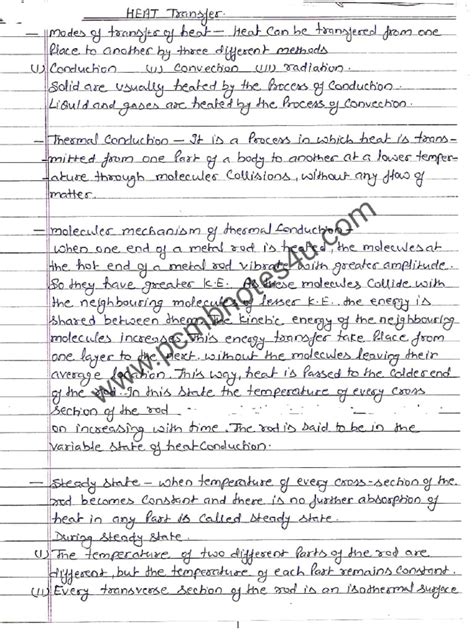 HEAT Transfer.
– Modes of transfer of heat – Heat Can be transfered from one
Place to another by three different methods
(i) Conduction (ii) Convection (iii) radiation.
Solid are usually heated by the Process of Conduction.
Liquid and gases are heated by the Process of Convection.
– Thermal Conduction – It is a Process in which heat is trans-
mitted from one Part of a body to another at a lower temper-
ature through moleculer Collisions, without any flow of
matter.
– moleculer mechanism of thermal Conduction –
when one end of a metal rod is heated, the molecules at
the hot end of a metal rod vibrate with greater amplitude.
So they have greater K.E. As these molecules Collide with
the neighbouring molecules of lesser K.E. the energy is
shared between them. The kinetic energy of the neighbouring
molecules increases. This energy transfer take Place from
one layer to the next, without the molecules leaving their
average location. This way, heat is passed to the Colder end
of the rod. In this state the temperature of every cross
section of the rod
on increasing with time. The rod is said to be in the
variable state of heat Conduction.
– Steady state – when temperature of every cross-section of the
rod becomes Constant and there is no further absorption of
heat in any Part is Called steady state.
During steady state.
(i) The temperature of two different Parts of the rod are
different, but the temperature of each Part remains Constant.
(ii) Every transverse section of the rod is an isothermal surface
1
www.pcmbnotes4u.com